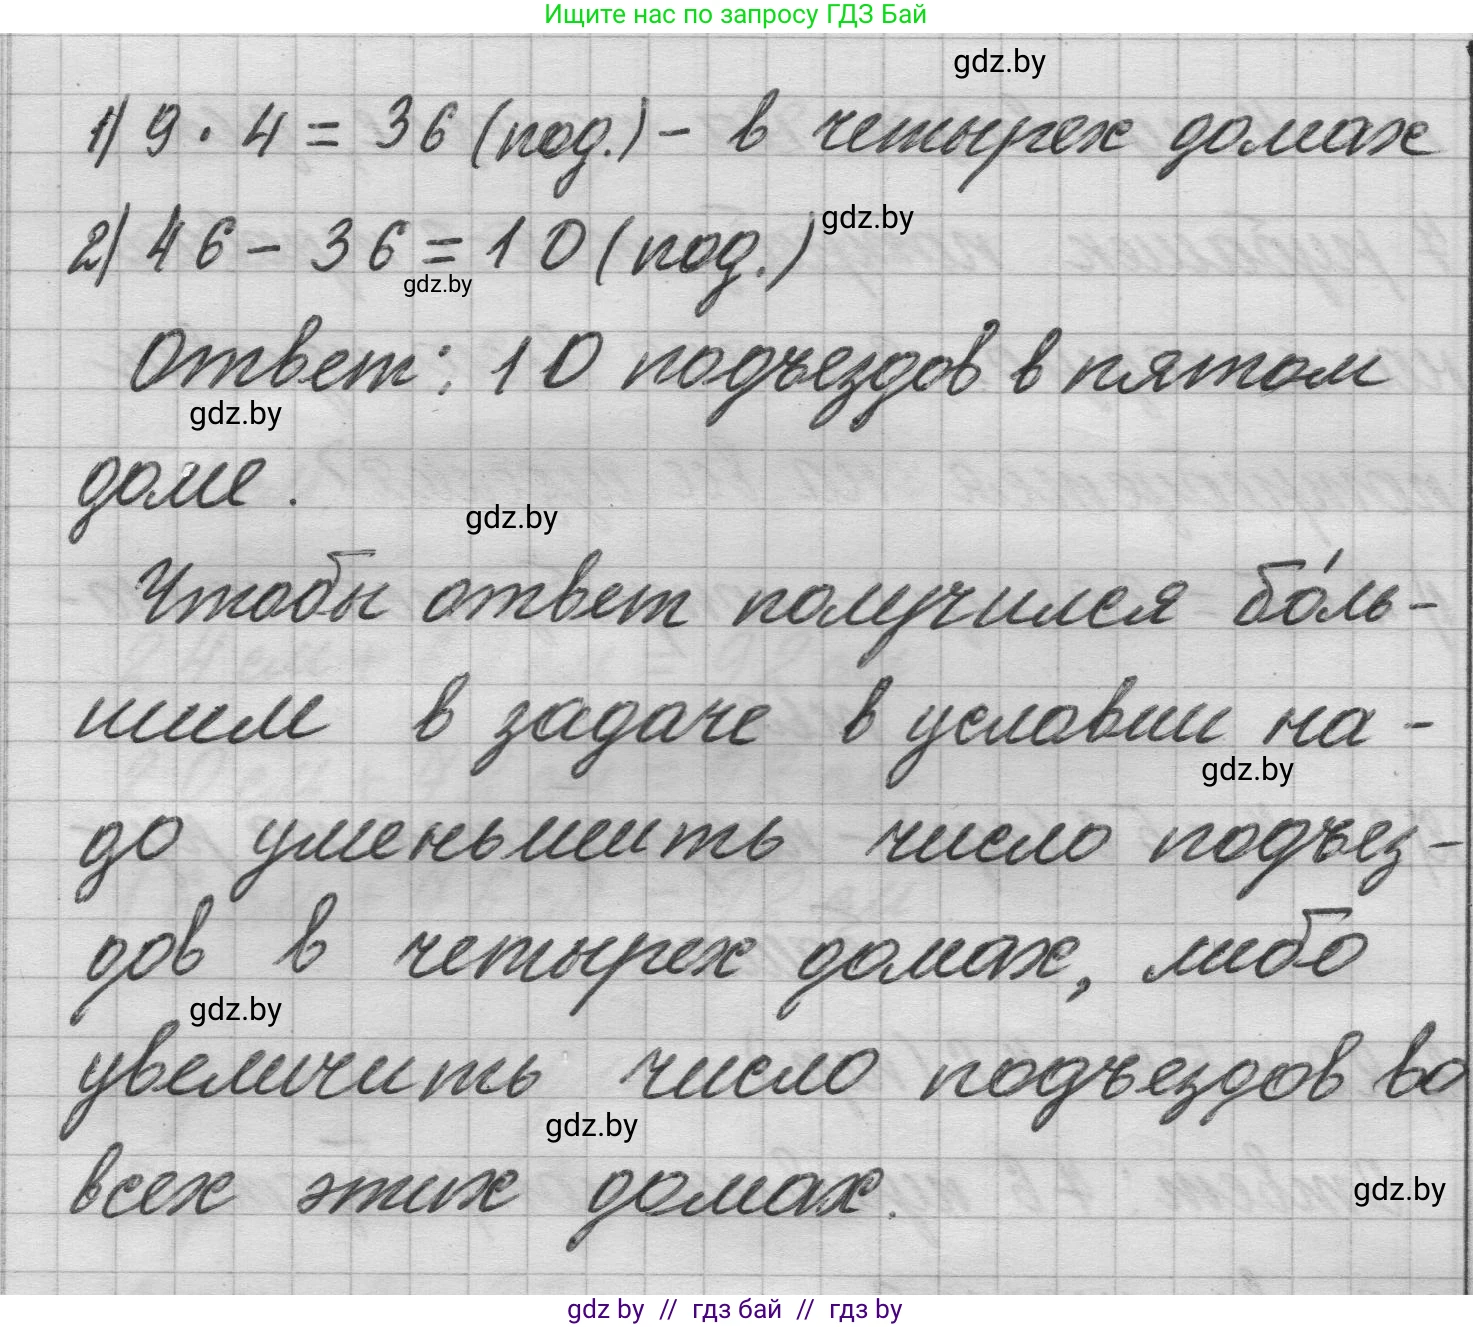 Ищите нас по запросу ГДЗ Бай
gdz.by
1) 9 · 4 = 36 (под.) – в четырех домах
2) 46 – 36 = 10 (под.)
gdz.by
gdz.by
Ответ: 10 подъездов в пятом
gdz.by
доме.
gdz.by
Чтобы ответ получился бо́ль-
шим в задаче в условии на-
gdz.by
до уменьшить число подъез-
дов в четырех домах, либо
gdz.by
увеличить число подъездов во
gdz.by
всех этих домах.
gdz.by
gdz by // гдз бай // гдз by